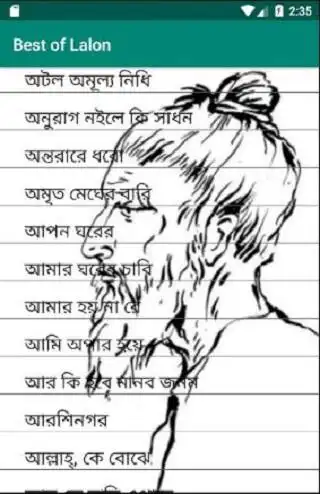 2:35
Best of Lalon
অটল অমূল্য নিধি
অনুরাগ নইলে কি সাধন
অন্তরারে ধরো
অমৃত মেঘের বারি
আপন ঘরের
আমার ঘরের চাবি
আমার হয় না রে
আমি অপার হয়ে
আর কি হবে মানব জনম
আরশিনগর
আল্লাহ, কে বোঝে